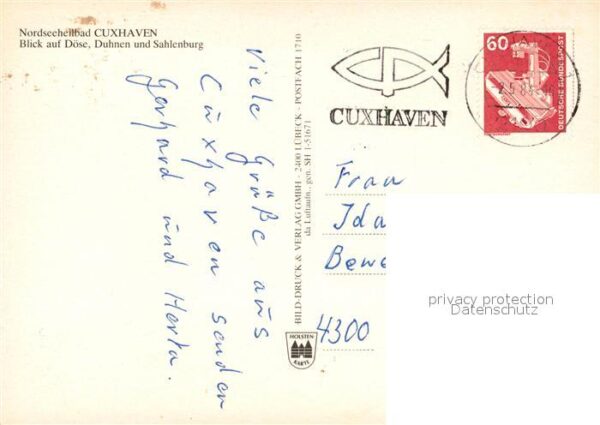 Nordseeheilbad CUXHAVEN
Blick auf Döse, Duhnen und Sahlenburg
Viele Grüße aus
Cuxhaven senden
Gerhard und Herta.
BILD-DRUCK & VERLAG GMBH - 2400 LÜBECK - POSTFACH 1710
da Luftaufn., gen. SH 1-51671
HOLSTEN
KARTE
CUXHAVEN
60
DEUTSCHE BUNDESPOST
Frau
Ida
Bewe
4300
privacy protection
Datenschutz